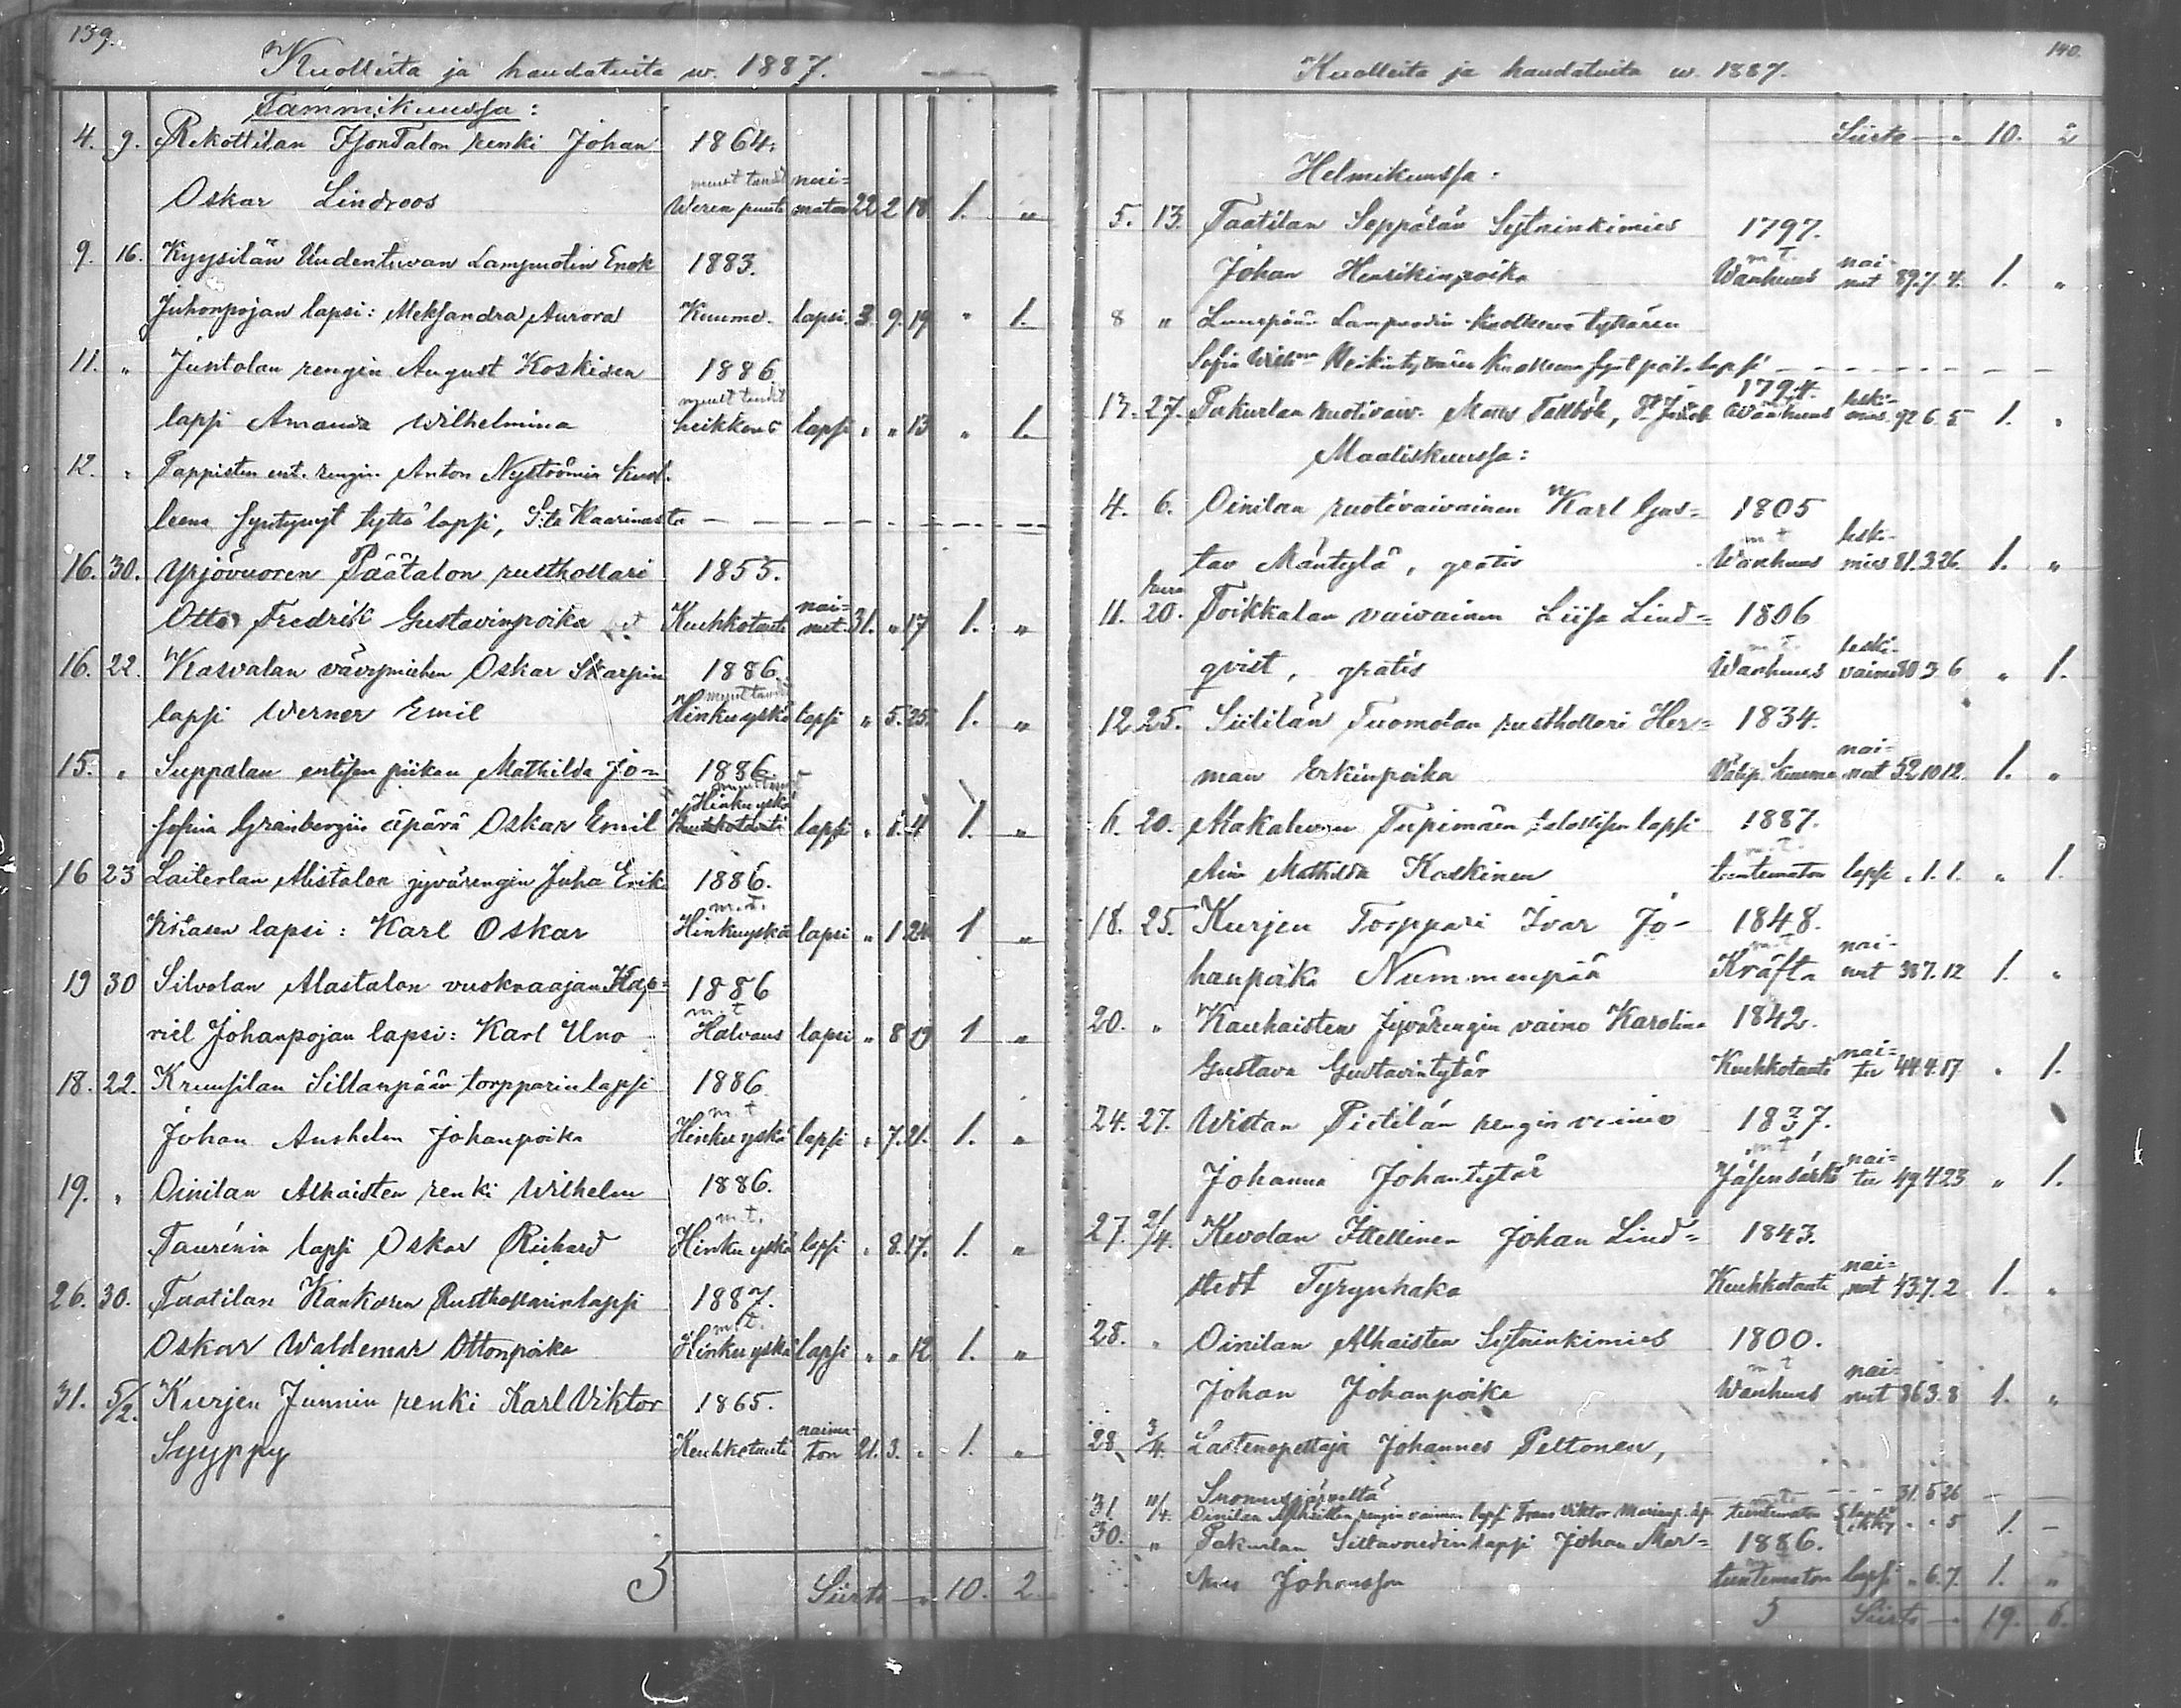 139.
Kuolleita ja haudatuita w. 1887.
Tammikuussa:
4. 9. Rekottilan Isontalon renki Johan 1864.
muut taudit nai=
Oskar Lindroos Weren puute maton 22 2 18 1. "
9. 16. Kyysilän Uudentuvan Lampuotin Enok 1883.
Juhonpojan lapsi: Aleksandra Aurora Kuume. lapsi. 3 9. 19 " 1.
11. " Juntolan rengin August Koskisen 1886
muut taudit
lapsi Amanda Wilhelmina heikkous lapsi " " 13 " 1.
12. " Pappisten ent. rengin Anton Nyströmin kuol-
leena syntynyt tyttö lapsi, S:ta Kaarinasta
16. 30. Yrjövuoren Päätalon rusthollari 1855.
nai=
Otto Fredrik Gustavinpoika Keuhkotauti nut. 31. " 17 1. "
16. 22. Kasvalan vävymiehen Oskar Skarpin 1886.
muut taudit
lapsi Werner Emil Hinkuyskä lapsi " 5. 25. 1. "
15. " Suppalan entisen piikan Mathilda Jo= 1886
Hinkuyskä
sefina Granbergin äpärä Oskar Emil Keuhkotauti lapsi " 4 1. "
16 23 Laiterlan Alistalon jyvärengin Juha Erik 1886.
m.t.
lapsi: Karl Oskar Hinkuyskä lapsi " 1 24 1 "
19 30 Silvolan Alastalon vuokraajan Kap= 1886
m.t
riel Johanpojan lapsi: Karl Uno Halvaus lapsi " 8 19 1 "
18. 22. Kruusilan Sillanpään torpparin lapsi 1886
m t
Johan Anshelm Johanpoika Hinkuyskä lapsi " 7. 21. 1. "
19. " Oinilan Alhaisten renki Wilhelm 1886.
m.t.
Taurénin lapsi Oskar Richard Hinkuyskä lapsi " 8. 17. 1. "
26. 30. Taatilan Kankaren Rusthollarin lapsi 1887.
m.t.
Oskar Waldemar Ottonpoika Hinkuyskä lapsi " " 12 1. "
31. 5/2. Kurjen Junnin renki Karl Viktor 1865.
naima-
Syyppy Keuhkotauti ton 21. 3. " 1. "
5 Siirto 10. 2.
140.
Kuolleita ja haudatuita w. 1887.
Siirto 10. 2
Helmikuussa.
5. 13. Taatilan Seppälän Sytninkimies 1797.
m t. nai-
Johan Henrikinpoika Wanhuus nut 89. 7. 4. 1. "
8 " Lampuodin kuolleena tyttären
Sofia
1794. leski-
13. 27. Pakurlan ruotivaiv. Matts Wanhuus mies 92 6. 5 1. "
Maaliskuussa:
4. 6. Oinilan ruotivaivainen Karl Gus= 1805
m t leski-
tav Mäntylä, gratis Wanhuus mies 81. 3. 26. 1. "
11. 20. Toikkalan vaivainen Liisa Lind= 1806
m.t. leski-
qvist, gratis Wanhuus vaimo 80 3 6 " 1.
12 25. Siitilän Tuomolan rusthollari Her= 1834.
nai-
man Erkinpoika kuume nut 52 10 12. 1. "
6. 20. talollisen lapsi 1887.
m.t.
Aina Mathilda Koskinen tuntematon lapsi " 1. 1. " 1.
18. 25. Kurjen Torppari Ivar Jo- 1848.
m.t nai-
hanpoika Nummenpää Kräfta nut 38 7. 12 1. "
20. " Kauhaisten Jyvärengin vaimo Karolina 1842.
nai=
Gustava Gustavintytär Keuhkotauti tu 44. 4. 17 " 1.
24. 27. Wistan Pietilän rengin vaimo 1837.
m t nai-
Johanna Johantytär Jäsensärky tu 49 4 23 " 1.
27. 2/4. Kevolan Itsellinen Johan Lind= 1843.
nai-
stedt Tyrynhaka Keuhkotauti nut 43. 7. 2 1. "
28. " Oinilan Alhaisten Sytninkimies 1800.
m t nai-
Johan Johanpoika Wanhuus nut 86 3. 8 1. "
28 3/4. Lastenopettaja Johannes Peltonen,
Suomusjärveltä 31. 5 26
31. 11/4. Oinilan Alhaisten rengin vaimon lapsi Frans Viktor tuntematon lapsi " " 5 1. –
30. " Pakurlan Siltavoudin lapsi Johan Mar= 1886.
Johansson tuntematon lapsi " 6. 7. 1. "
5 Siirto 19. 6.